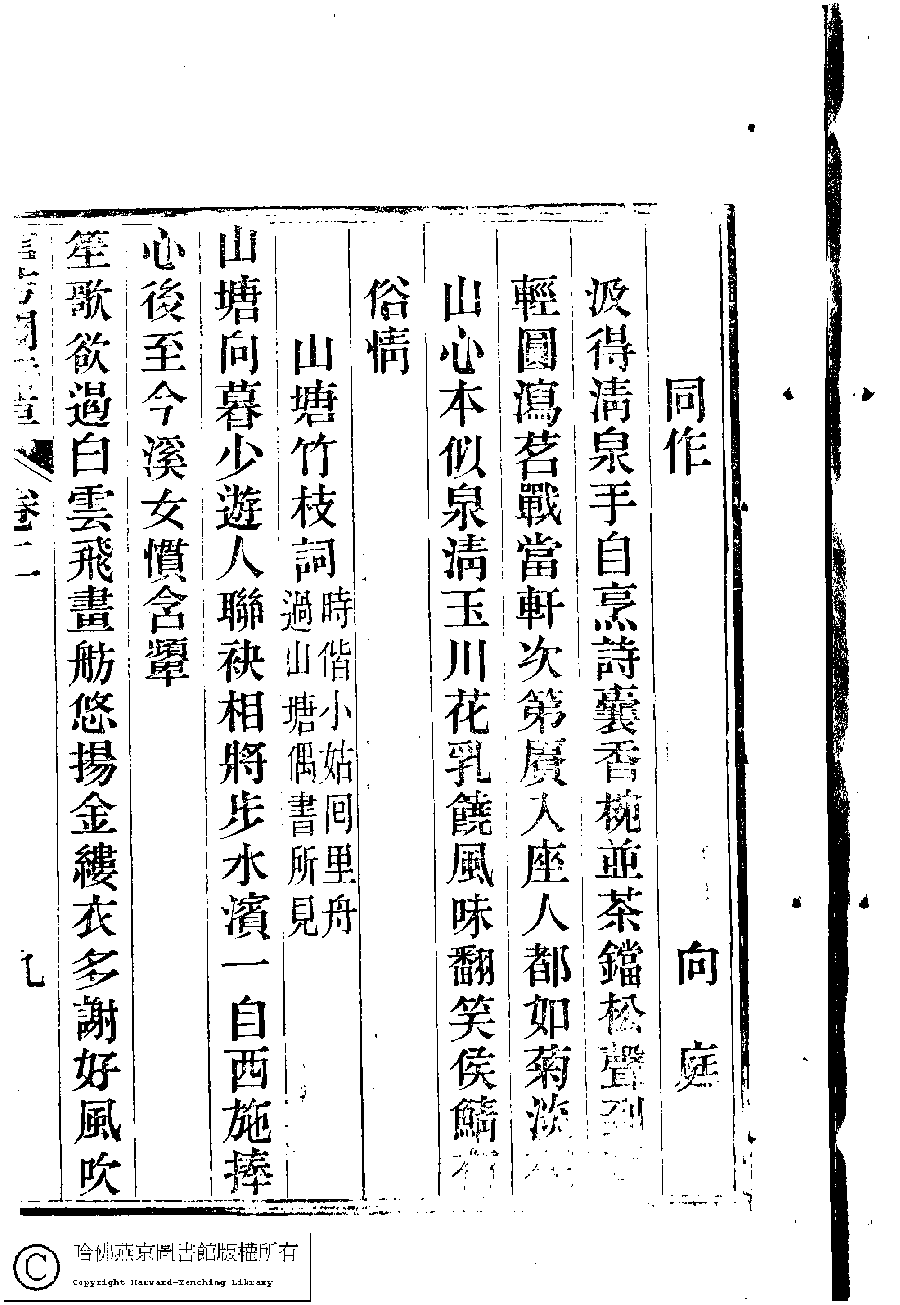 同作
向庭
汲得淸泉手自烹詩囊香椀並茶鐺松聲到
輕圓瀉茗戰當軒次第賡入座人都如菊淡
山心本似泉淸玉川花乳饒風味翻笑侯鯖
俗情
山塘竹枝詞
時偕小姑囘里舟
過山塘偶書所見
山塘向暮少遊人聯袂相將步水濱一自西施捧
心後至今溪女慣含顰
笙歌欲過白雲飛畫舫悠揚金縷衣多謝好風吹
卷二
九
哈佛燕京圖書館版權所有
Copyright Harvard-Yenching Library